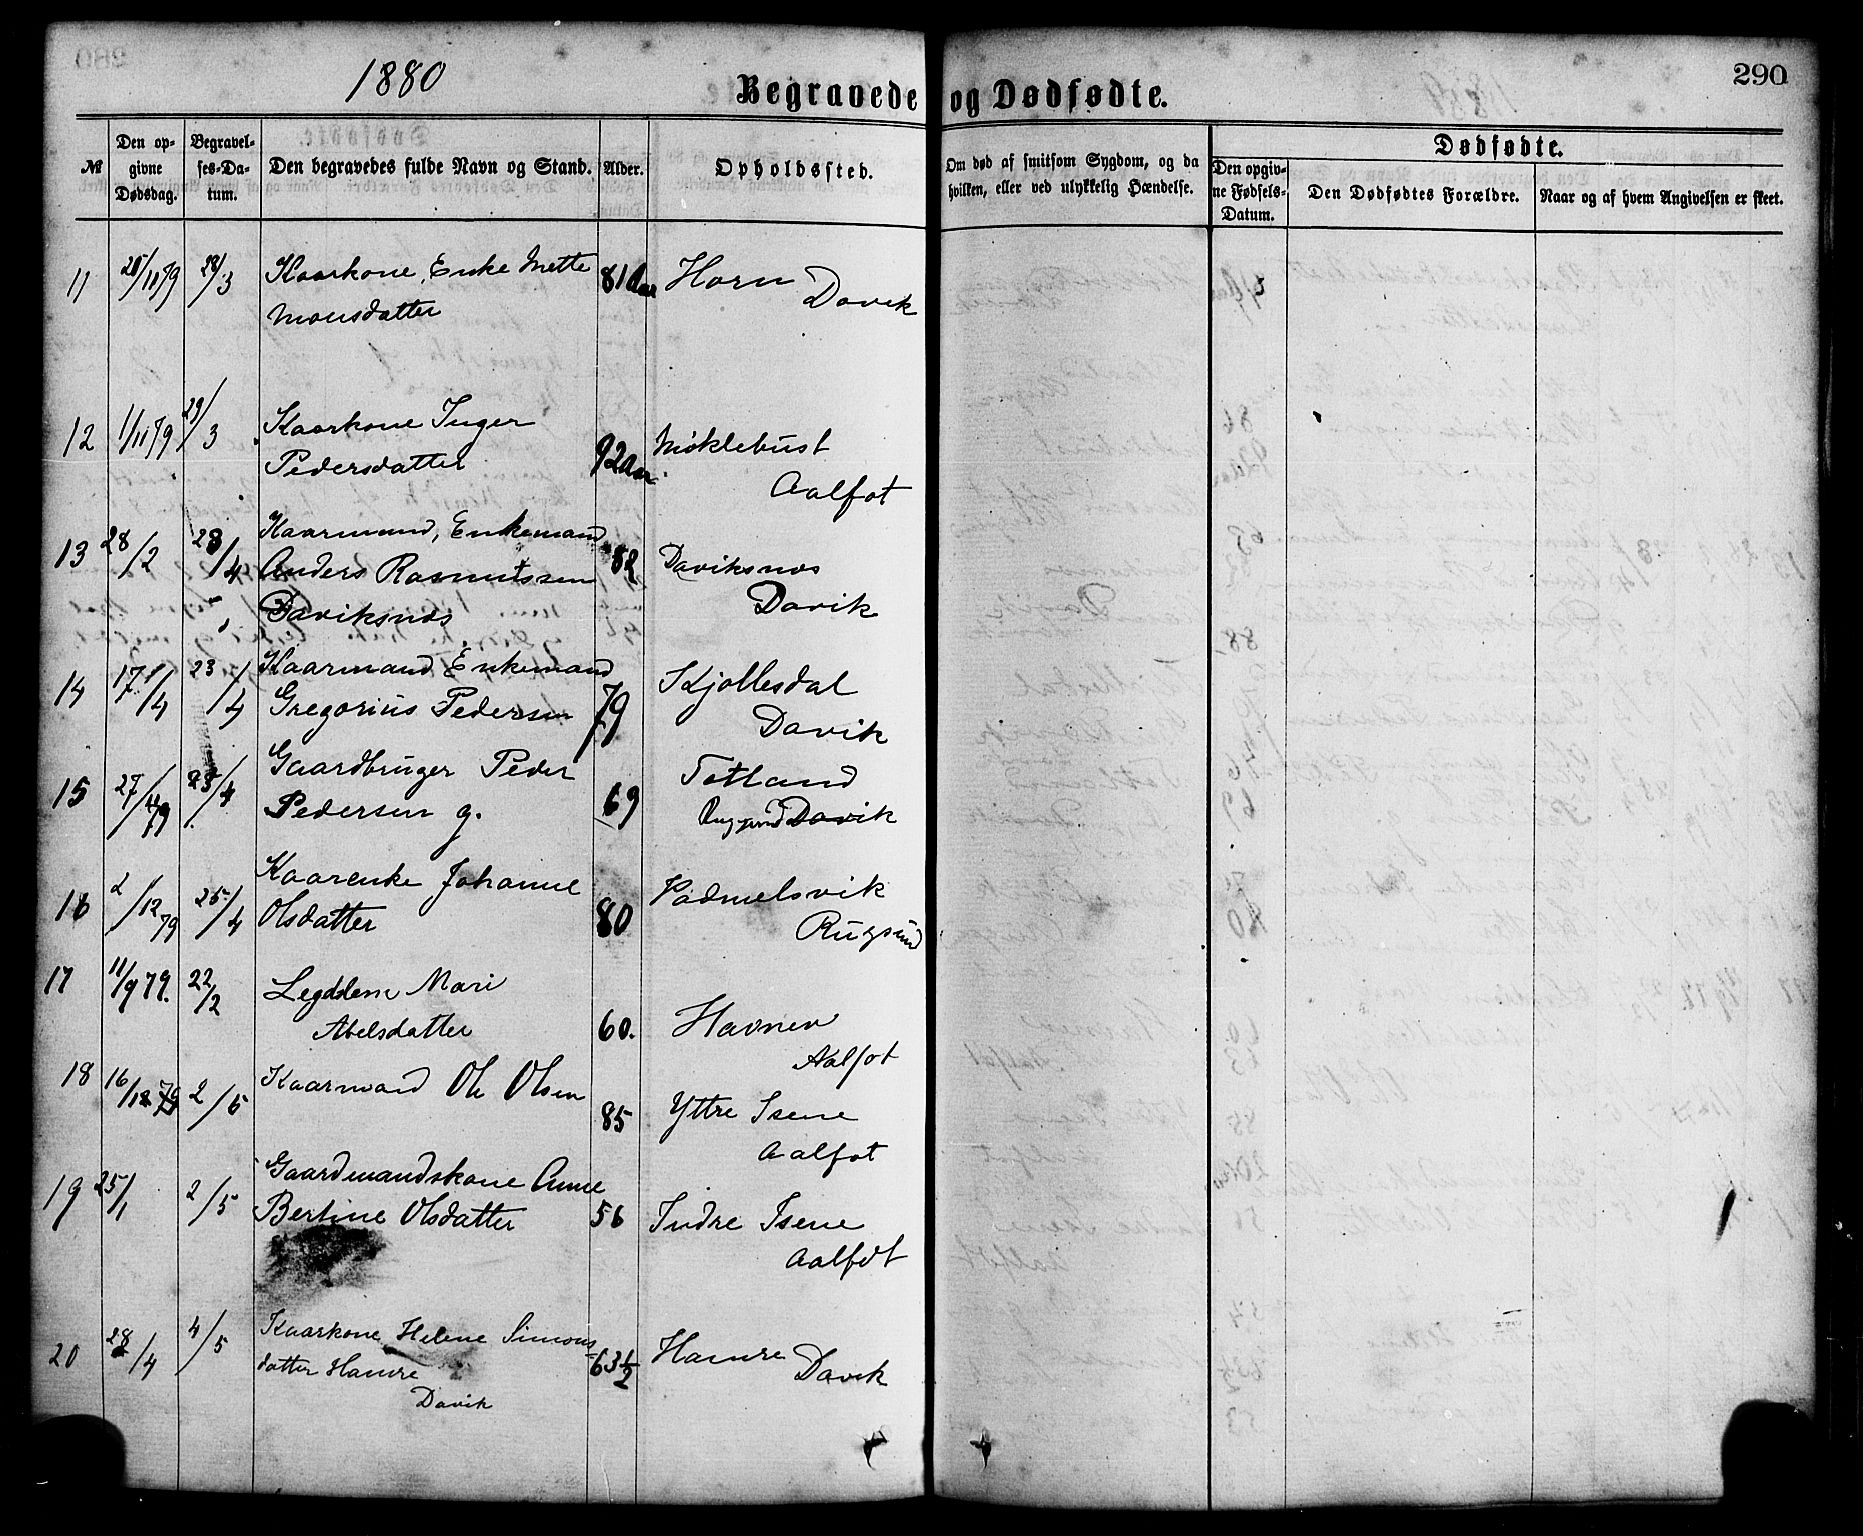 1880
Begravede og Dødfødte.
290
№
Den opgivne Dødsdag.
Begravelses-Datum.
Den begravedes fulde Navn og Stand.
Alder.
Opholdssted.
Om død af smitsom Sygdom, og da hvilken, eller ved ulykkelig Hændelse.
Dødfødte.
Den opgivne Fødsels-Datum.
Den Dødfødtes Forældre.
Naar og af hvem Angivelsen er skeet.
11 28/3 Kaarkone, Enke Mette 81 Aar Horn
Monsdatter Davik
12 1/11 79 29/3 Kaarkone Inger
Pedersdatter 92 Aar Møklebust
Aalfot
13 28/2 23/4 Kaarmand, Enkemand
Anders Rasmussen 82 Daviksnos
Daviksnos Davik
14 17/4 23/4 Kaarmand Enkemand Skjollesdal
Gregorius Pedersen 79 Davik
15 27/ 79 23/4 Gaardbruger Peder Totland
Pedersen g. 69 Davik
16 2/12 79 25/4 Kaarenke Johanne Padmelsvik
Olsdatter 80 Rugsund
17 11/9 79. 22/2 Legdslem Mari
Abelsdatter 60. Havnen
Aalfot
18 16/12 79 2/5 Kaarmand Ole Olsen 85 Yttre Isene
Aalfot
19 25/1 2/5 Gaardmandskone Anne
Bertine Olsdatter 56 Indre Isene
Aalfot
20 28/4 4/5 Kaarkone Helene Simons
datter Hamre 63 1/2 Hamre Davik
Davik